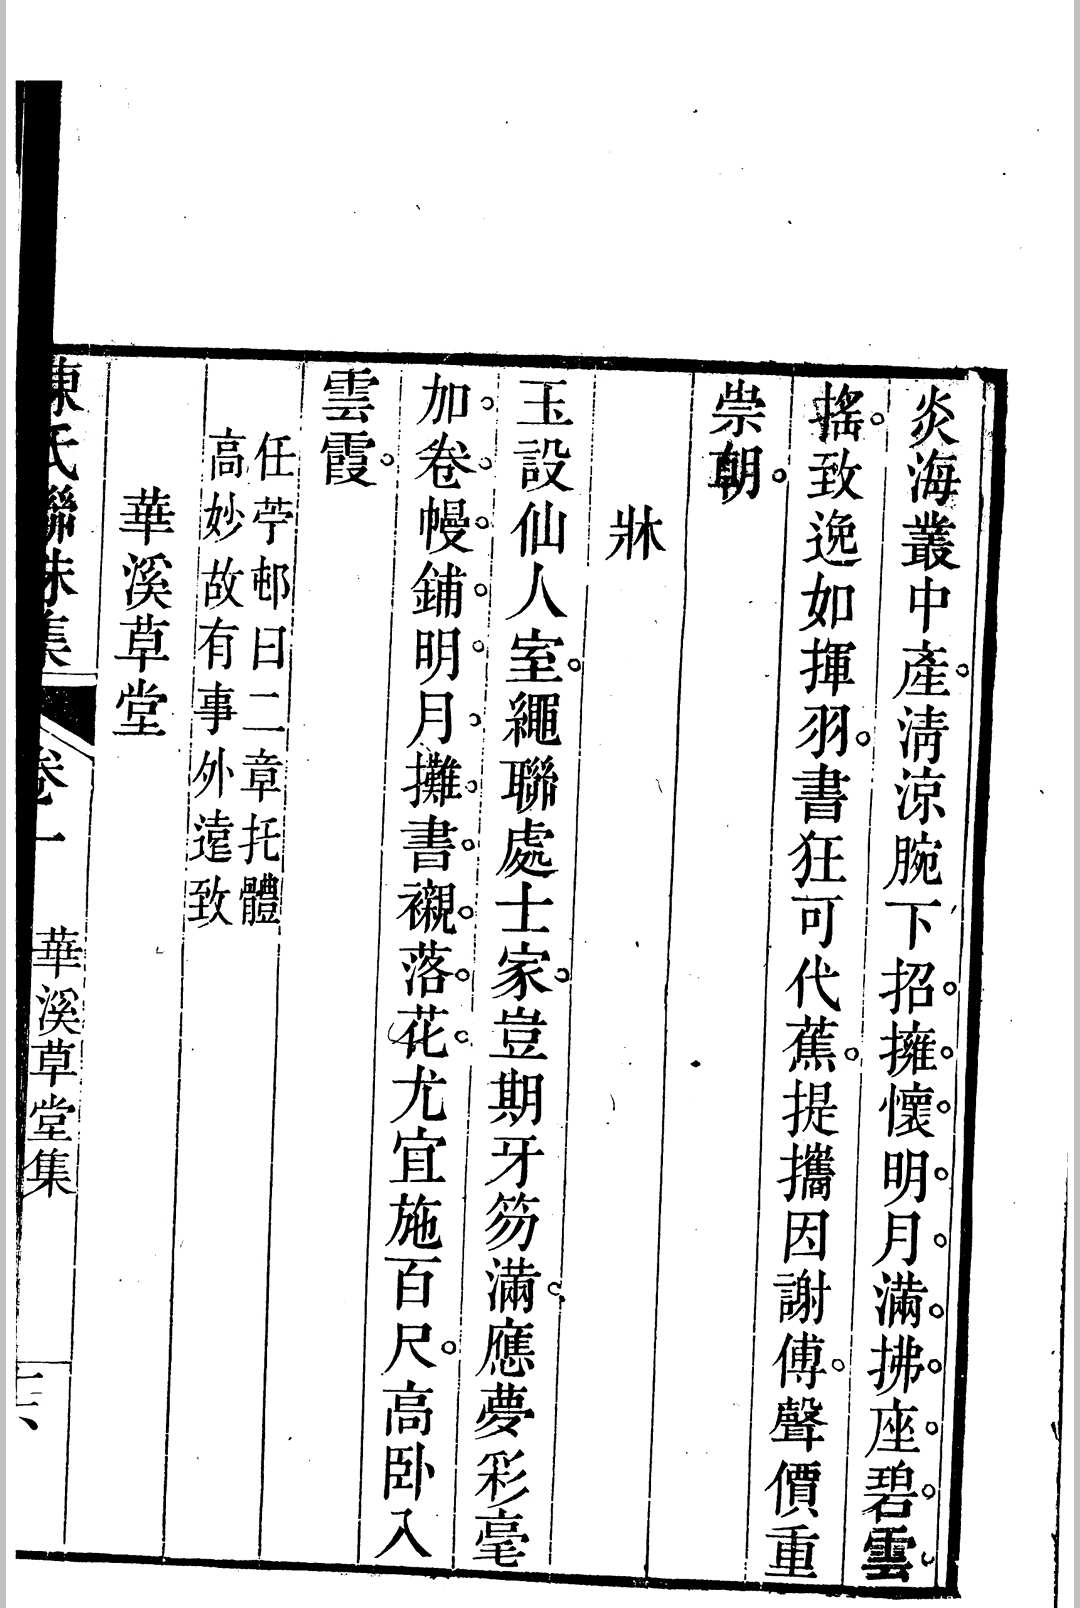 炎海叢中產清涼腕下招擁懷明月滿拂座碧雲
搖致逸如揮羽書狂可代蕉提攜因謝傅聲價重
崇朝
牀
玉設仙人室繩聯處士家豈期牙笏滿應夢彩毫
加卷幔鋪明月攤書襯落花尤宜施百尺高卧入
雲霞
任苧邨曰二章托體
高妙故有事外遠致
華溪草堂
陳氏聯珠集 卷一 華溪草堂集